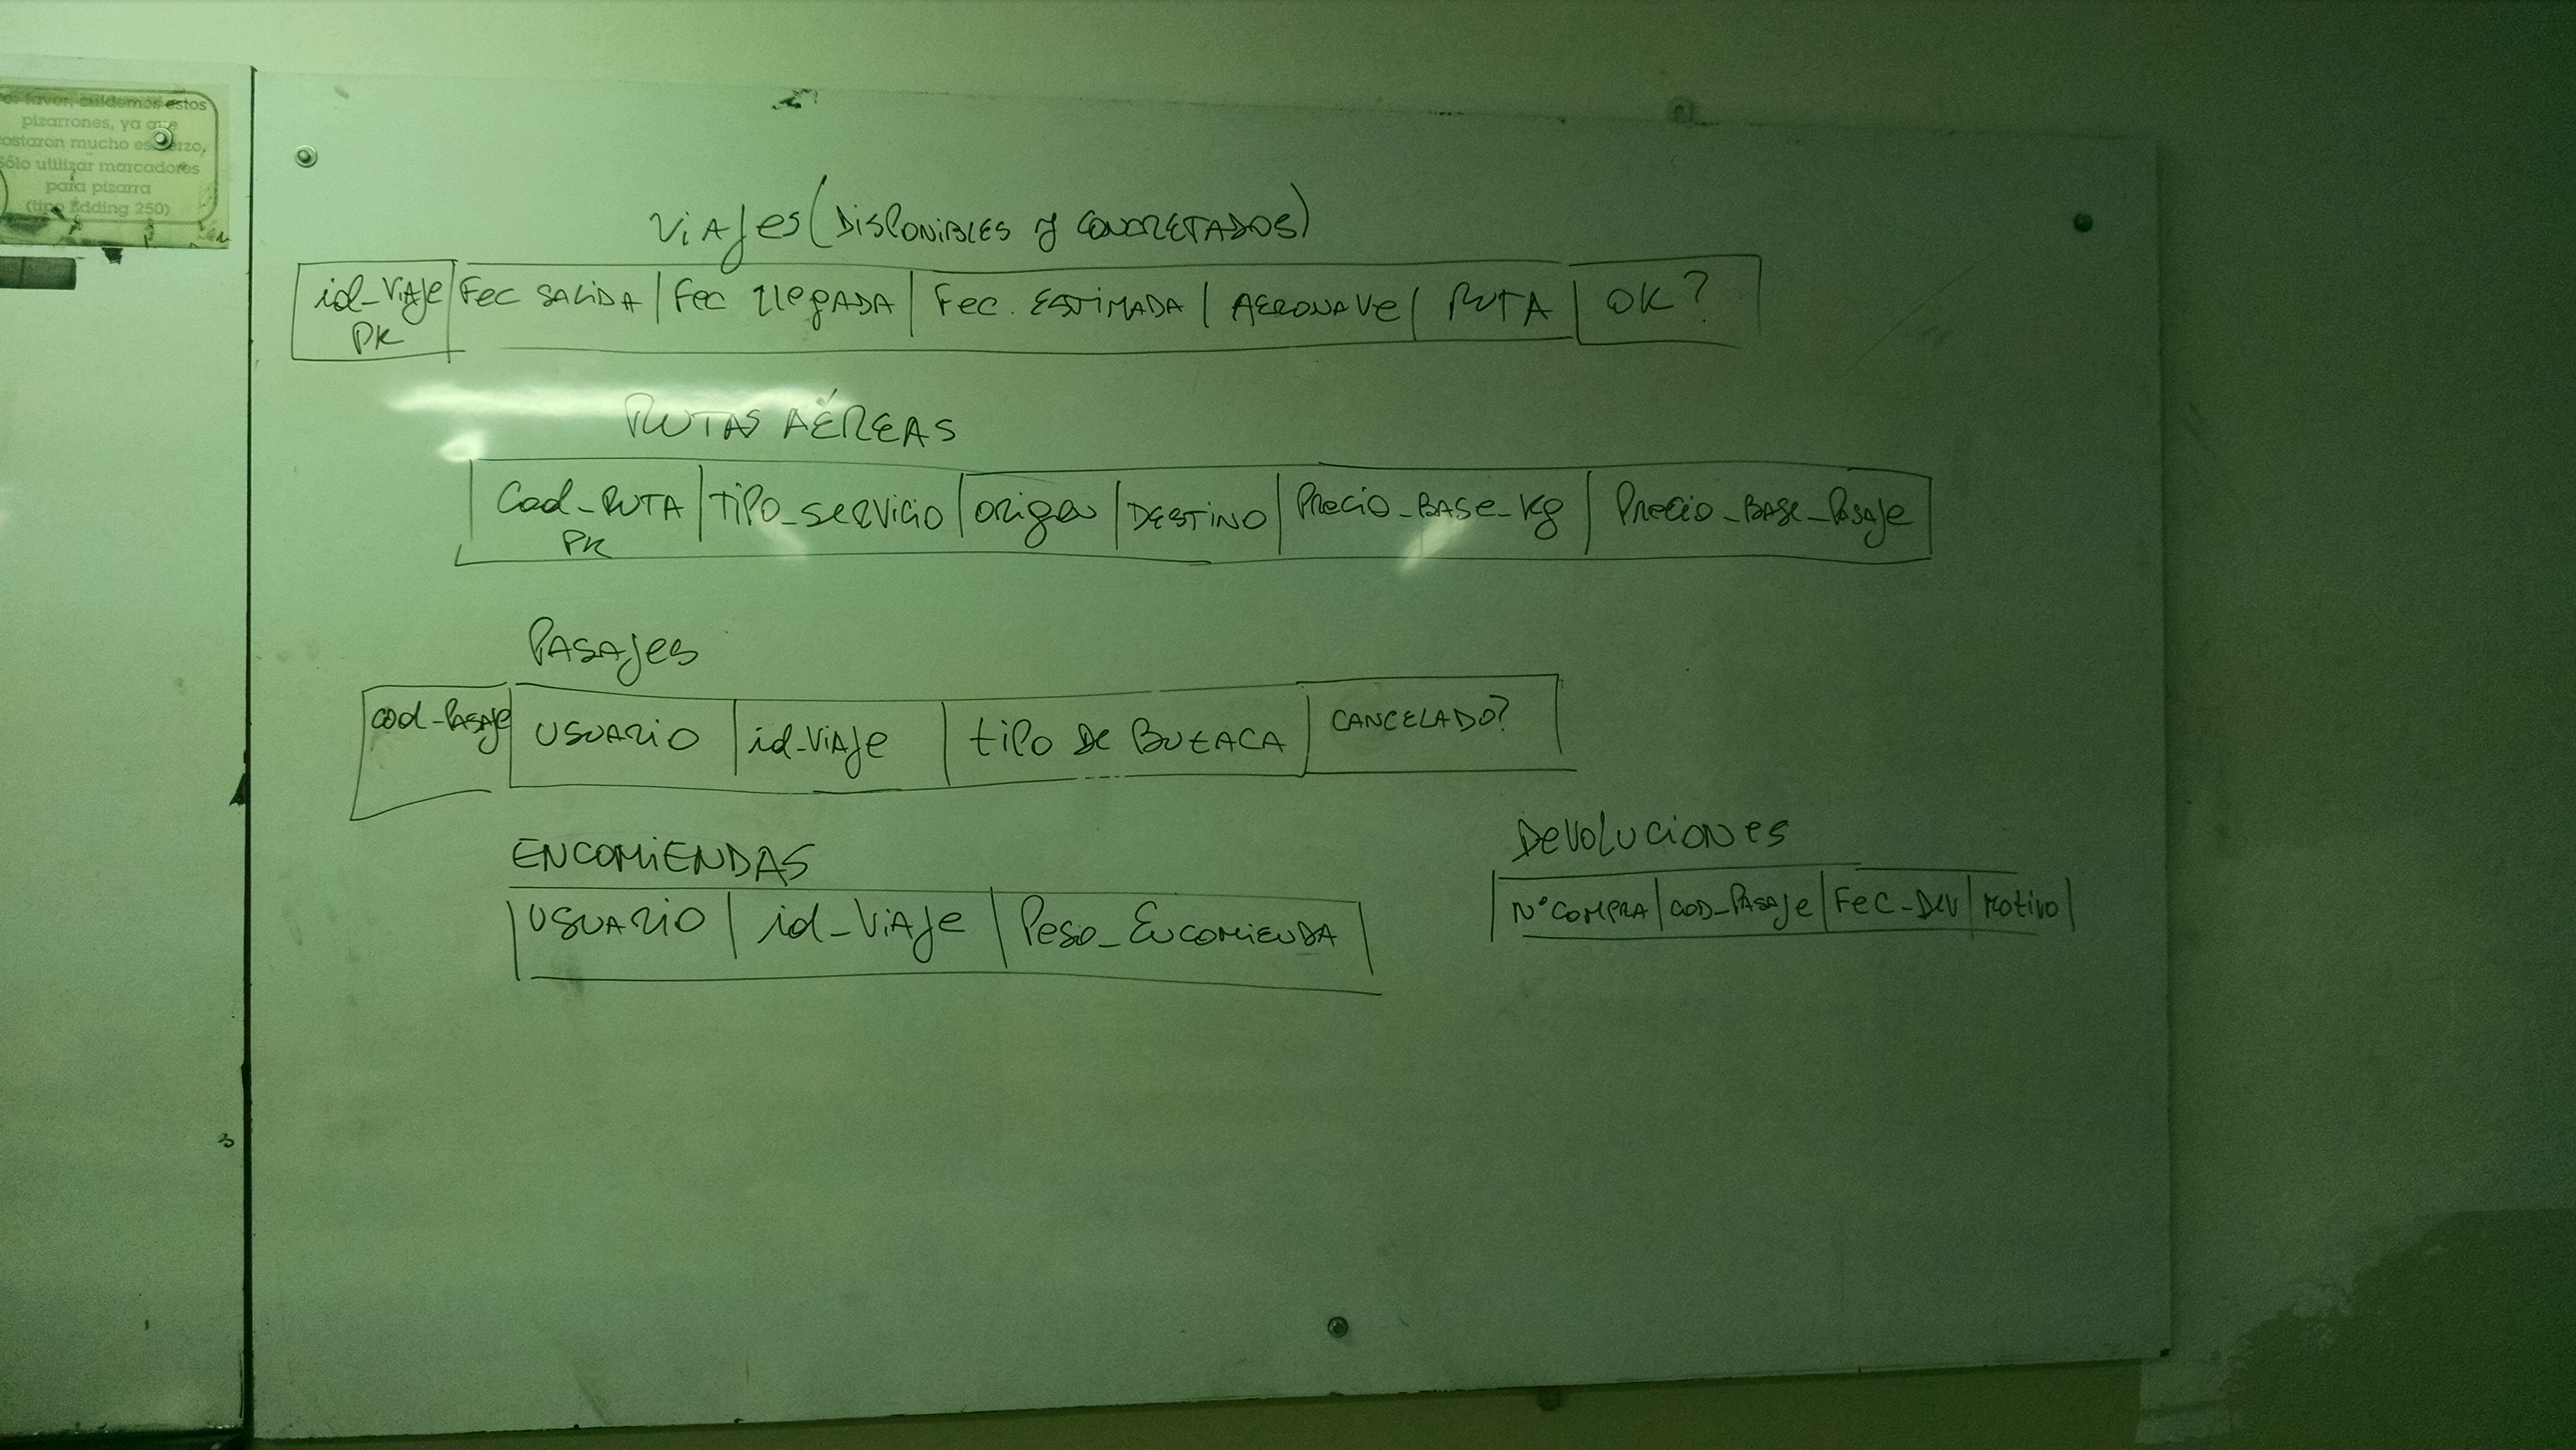 Por favor, cuidemos estos
pizarrones, ya que
costaron mucho esfuerzo,
Sólo utilizar marcadores
para pizarra
(tipo Edding 250)
ViAjes (DISPONIBLES y CONCRETADOS)
id_ViAje | Fec SALIDA | Fec llegADA | Fec. ESTIMADA | AERONAVe | RUTA | OK?
PK
RUTAS AÉREAS
Cod_RUTA | TiPo_seRvicio | ORigen | DESTINO | PRecio_BASe_Kg | PRecio_BASe_PASAje
PK
PASAjes
cod_PASAje | USUARIO | id_ViAje | tiPo De BUtACA | CANCELADO?
ENCOMIENDAS
USUARIO | id_ViAje | Peso_EncomiendA
DevoluCiones
N° COMPRA | COD_PASAje | Fec_DEV | Motivo